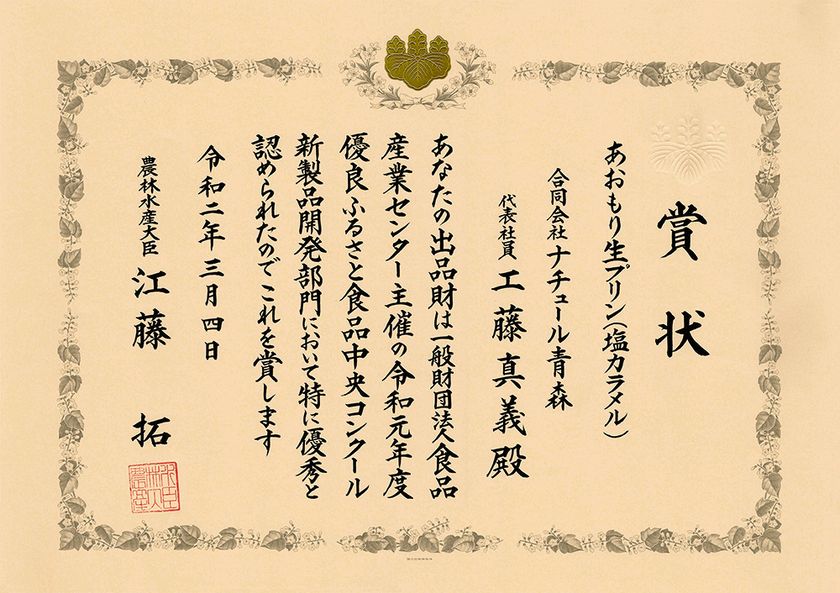 賞状
あおもり生プリン(塩カラメル)
合同会社 ナチュール青森
代表社員 工藤真義殿
あなたの出品財は一般財団法人食品
産業センター主催の令和元年度
優良ふるさと食品中央コンクール
新製品開発部門において特に優秀と
認められたのでこれを賞します
令和二年三月四日
農林水産大臣 江藤 拓